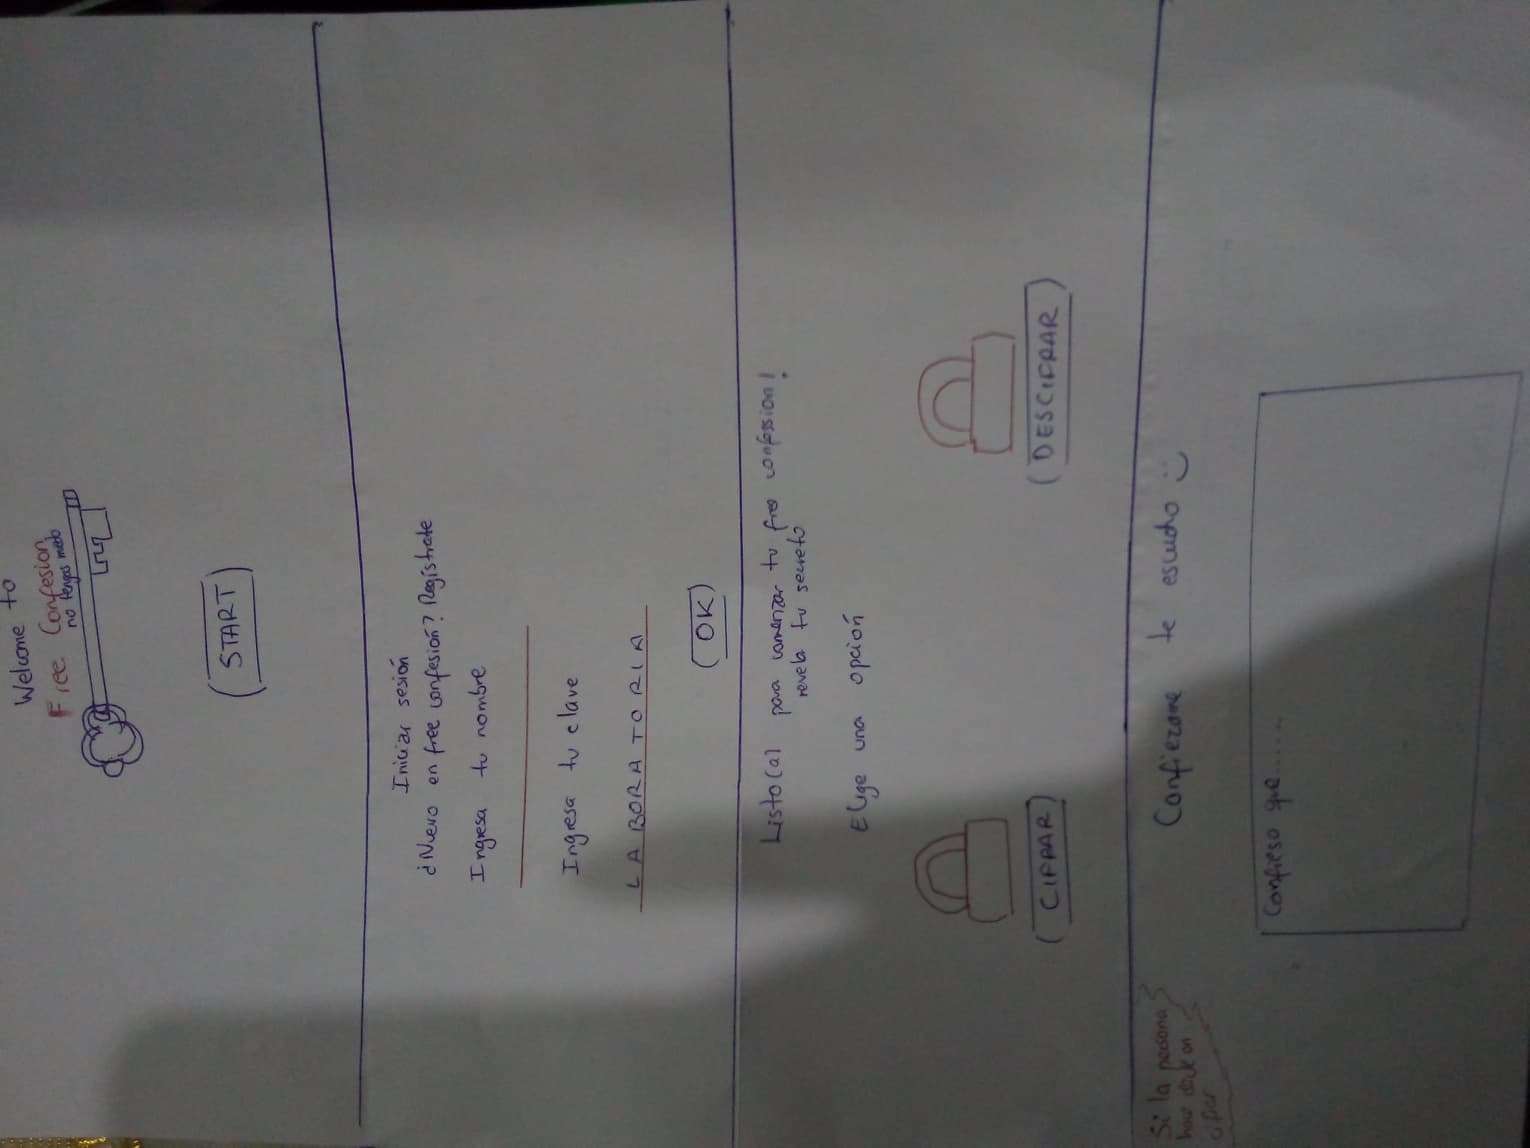 Welcome to
Free Confesion
no tengas miedo
START
Iniciar sesión
¿Nuevo en free confesión? Regístrate
Ingresa tu nombre
Ingresa tu clave
LABORATORIA
OK
Listo(a) para comenzar tu free confession!
revela tu secreto
Elige una opción
CIFRAR
DESCIFRAR
Si la persona
hace click en
cifrar
Confiezame te escucho
Confieso que......